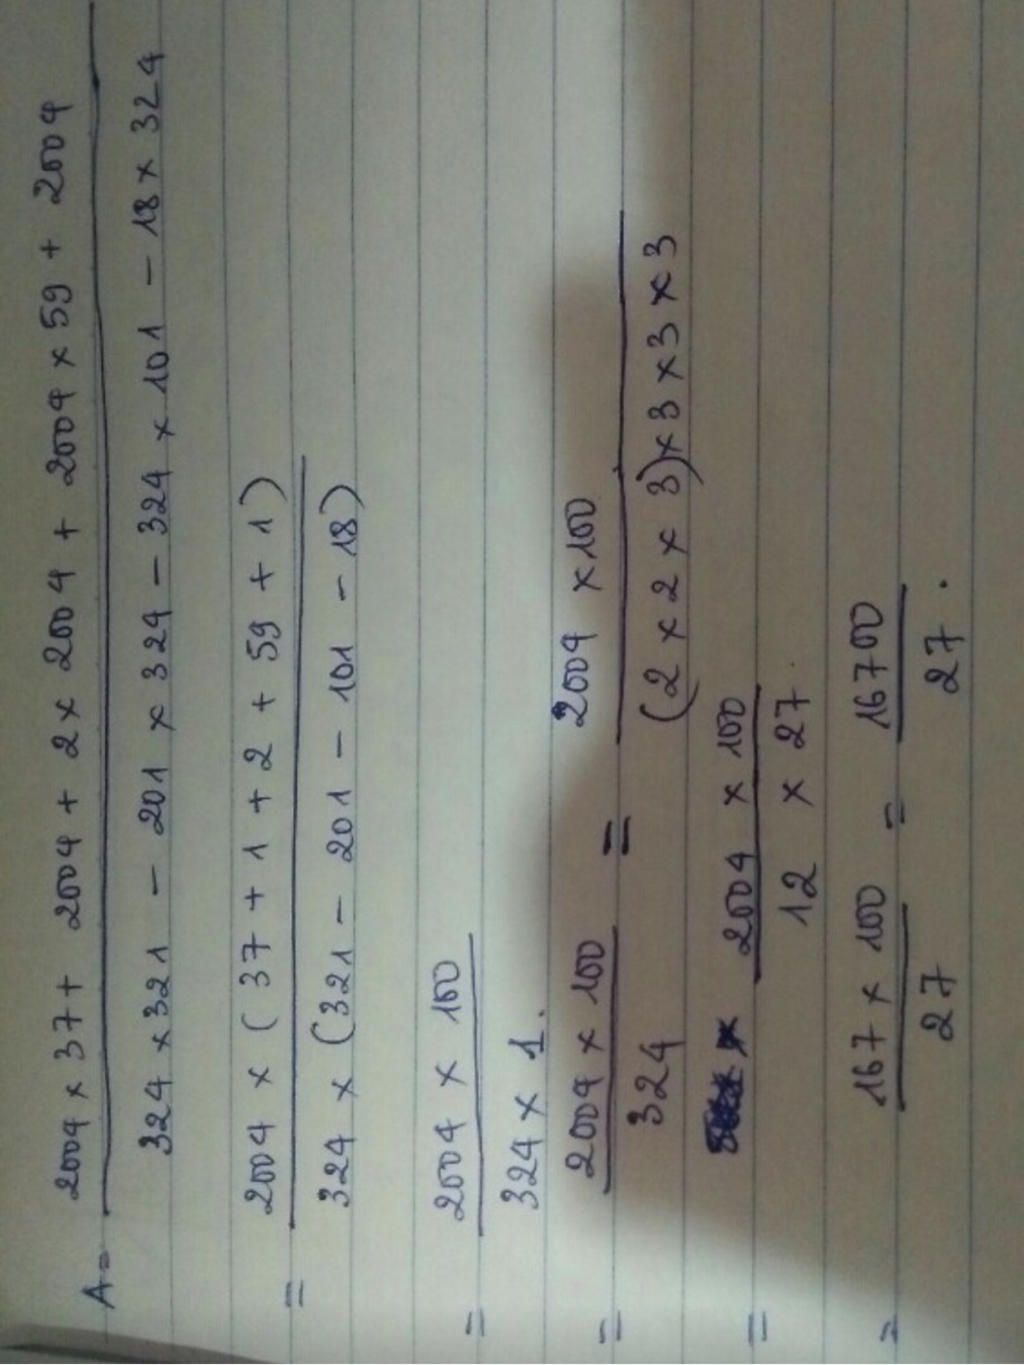 A = 2004 x 37 + 2004 + 2 x 2004 + 2004 x 59 + 2004
324 x 321 - 201 x 324 - 324 x 101 - 18 x 324
= 2004 x ( 37 + 1 + 2 + 59 + 1 )
324 x (321 - 201 - 101 - 18)
= 2004 x 100
324 x 1.
= 2004 x 100 = 2004 x 100
324 (2 x 2 x 3) x 3 x 3 x 3
= 2004 x 100
12 x 27
= 167 x 100 = 16700
27 27 .